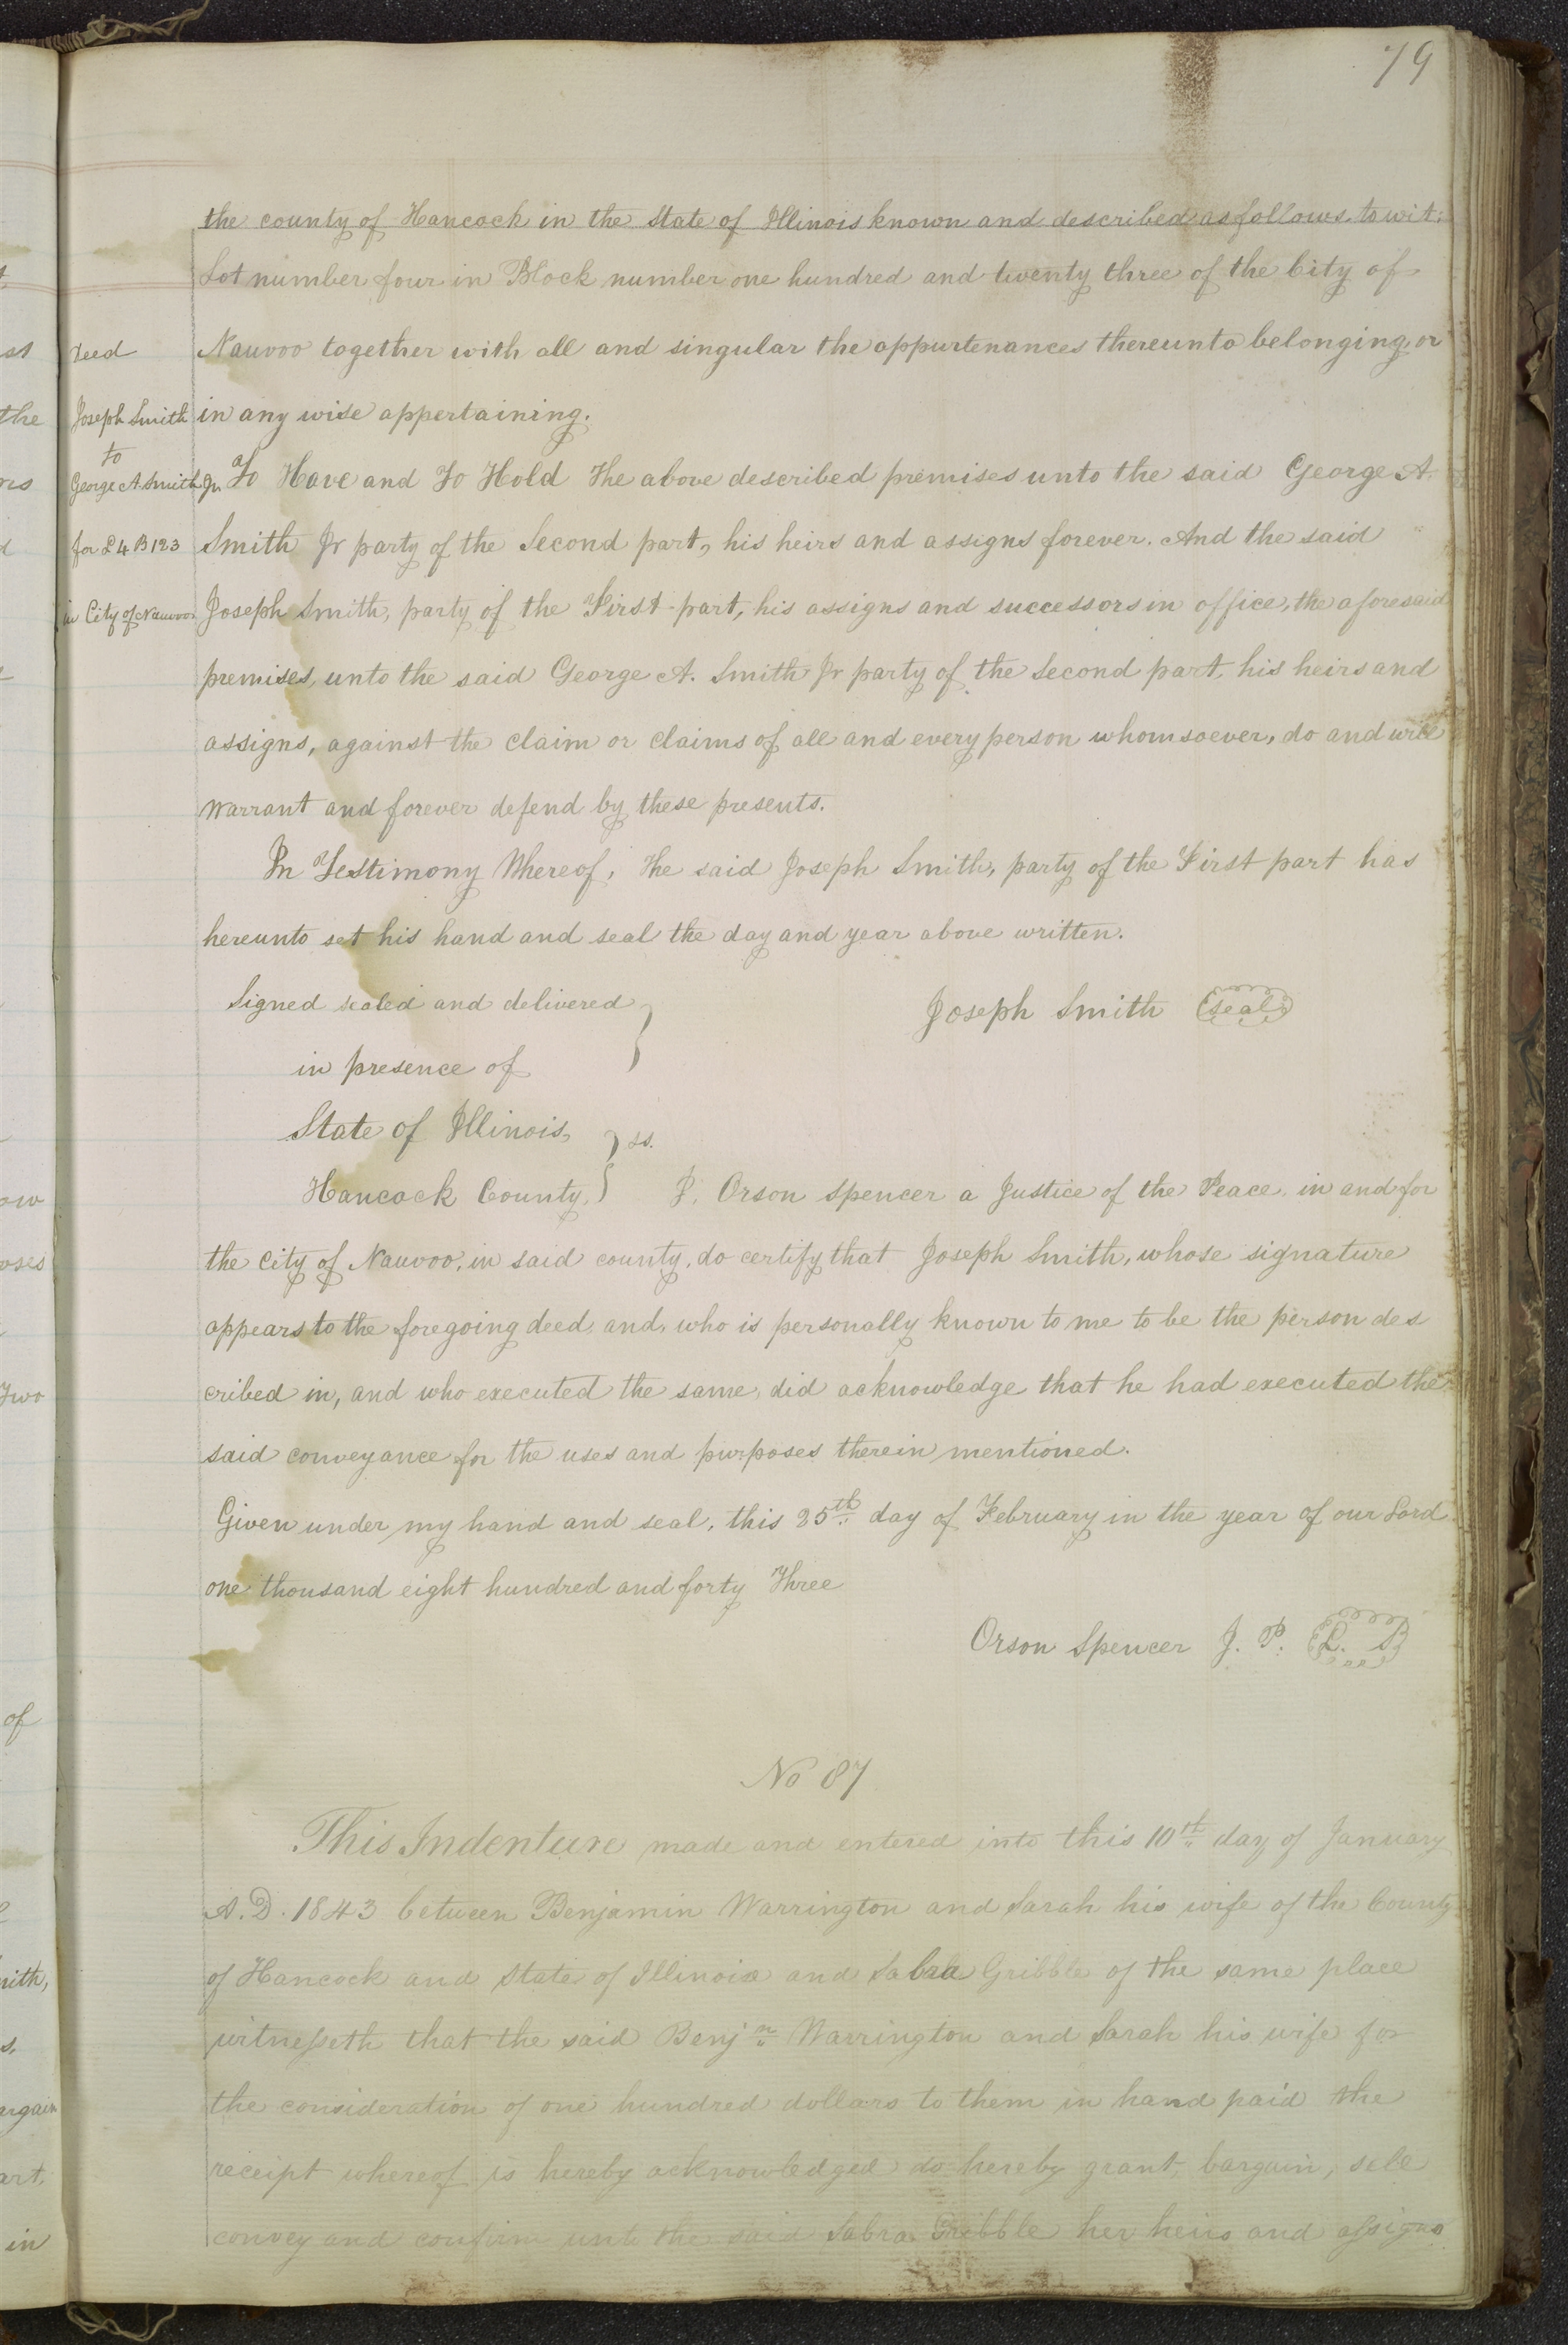 79
the county of Hancock in the State of Illinois known and described as follows. to wit:
Lot number four in Block number one hundred and twenty three of the City of
Deed
Nauvoo together with all and singular the appurtenances thereunto belonging, or
Joseph Smith
in any wise appertaining.
to
George A Smith Jr
To Have and To Hold The above described premises unto the said George A.
for L 4 B 123
Smith Jr party of the Second part, his heirs and assigns forever. And the said
in City of Nauvoo
Joseph Smith, party of the First part, his assigns and successors in office, the aforesaid
premises, unto the said George A. Smith Jr party of the Second part, his heirs and
assigns, against the claim or claims of all and every person whomsoever, do and will
warrant and forever defend by these presents.
In Testimony Whereof, The said Joseph Smith, party of the First part has
hereunto set his hand and seal the day and year above written.
Signed sealed and delivered
Joseph Smith (seal)
in presence of
State of Illinois, } ss.
Hancock County, } I, Orson Spencer a Justice of the Peace, in and for
the City of Nauvoo, in said county, do certify that Joseph Smith, whose signature
appears to the foregoing deed, and, who is personally known to me to be the person des
cribed in, and who executed the same, did acknowledge that he had executed the
said conveyance for the uses and purposes therein mentioned.
Given under my hand and seal, this 25th day of February in the year of our Lord
one thousand eight hundred and forty Three
Orson Spencer J. P. (L. S)
No 87
This Indenture made and entered into this 10th day of January
A. D. 1843 between Benjamin Warrington and Sarah his wife of the County
of Hancock and State of Illinois and Sabra Gribble of the same place
witnesseth that the said Benjn Warrington and Sarah his wife for
the consideration of one hundred dollars to them in hand paid the
receipt whereof is hereby acknowledged do hereby grant, bargain, sell
convey and confirm unto the said Sabra Gribble her heirs and assigns